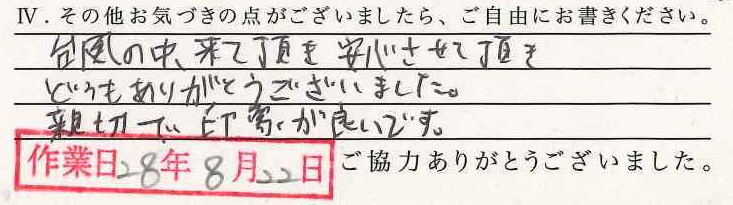 Ⅳ．その他お気づきの点がございましたら、ご自由にお書きください。
台風の中、来て頂き 安心させて頂き
どうもありがとうございました。
親切で 印象が良いです。
作業日28年8月22日 ご協力ありがとうございました。